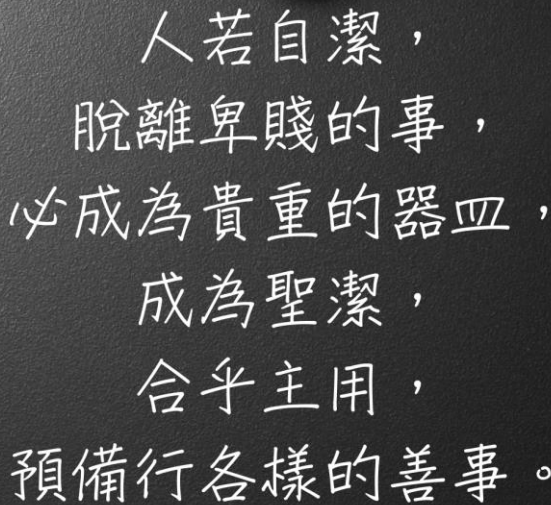 人若自潔，
脫離卑賤的事，
必成為貴重的器皿，
成為聖潔，
合乎主用，
預備行各樣的善事。